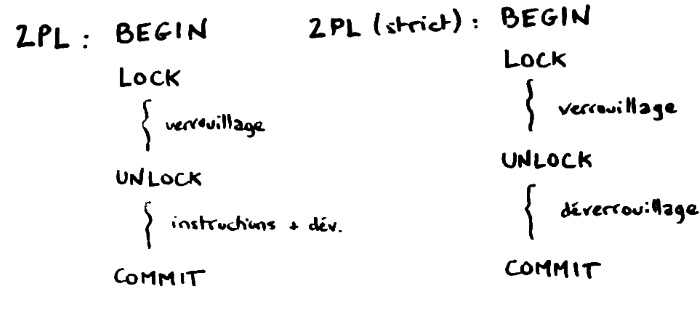 2PL : BEGIN
LOCK
verrouillage
UNLOCK
instructions + dév.
COMMIT
2PL (strict) : BEGIN
LOCK
verrouillage
UNLOCK
déverrouillage
COMMIT